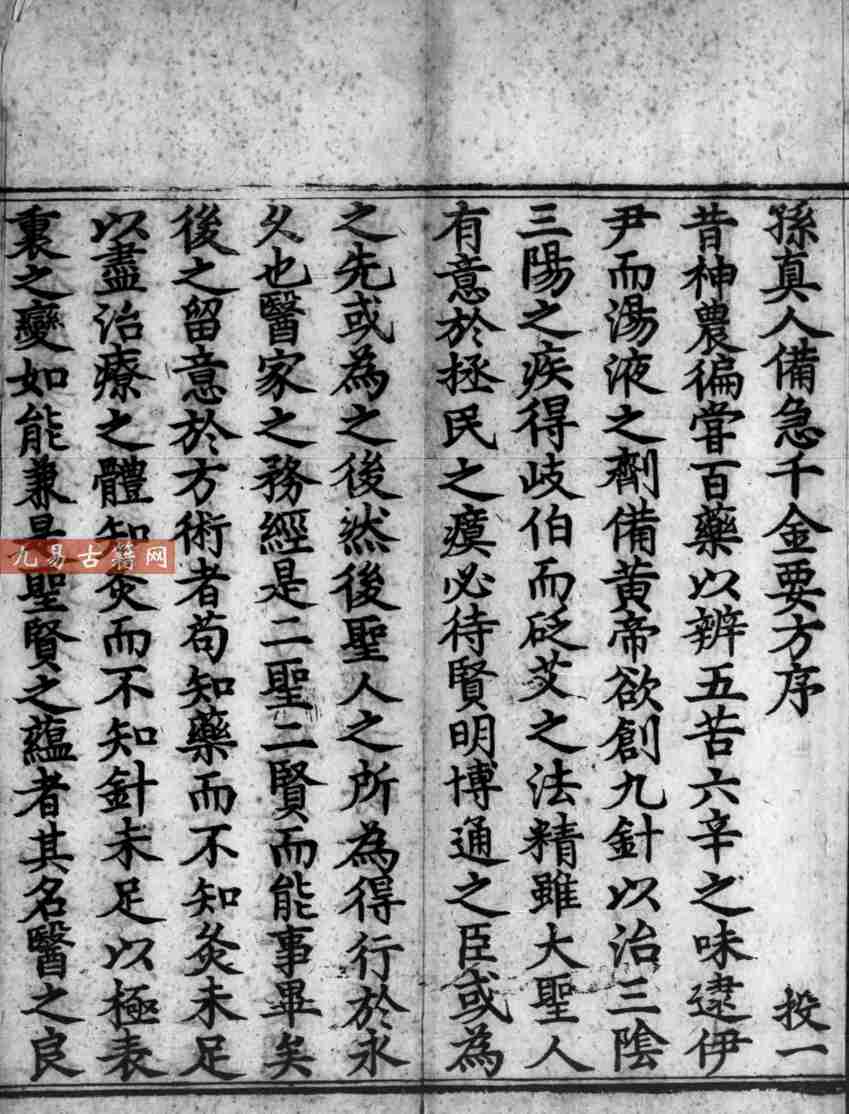 孫真人備急千金要方序 投一
昔神農徧甞百藥以辨五苦六辛之味逮伊
尹而湯液之劑備黄帝欲創九針以治三陰
三陽之疾得岐伯而砭艾之法精雖大聖人
有意於拯民之瘼必待賢明博通之臣或為
之先或為之後然後聖人之所為得行於永
久也醫家之務經是二聖二賢而能事畢矣
後之留意於方術者苟知藥而不知灸未足
以盡治療之體知灸而不知針未足以極表
裏之變如能兼是聖賢之蘊者其名醫之良
九易古籍网